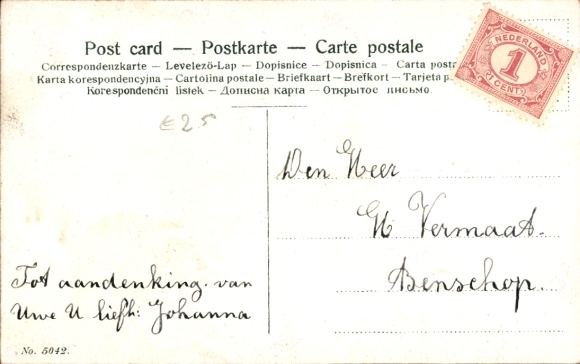 Post card — Postkarte — Carte postale
Correspondenzkarte — Levelező-Lap — Dopisnice — Dopisnica — Carta posta
Karta korespondencyjna — Cartolina postale — Briefkaart — Brefkort — Tarjeta p
Korespondenční lístek — Дописна карта — Открытое письмо.
NEDERLAND
1
CENT
€25
Den Heer
G Vermaat.
Benschop.
Tot aandenking. van
Uwe U liefh: Johanna
No. 5042.